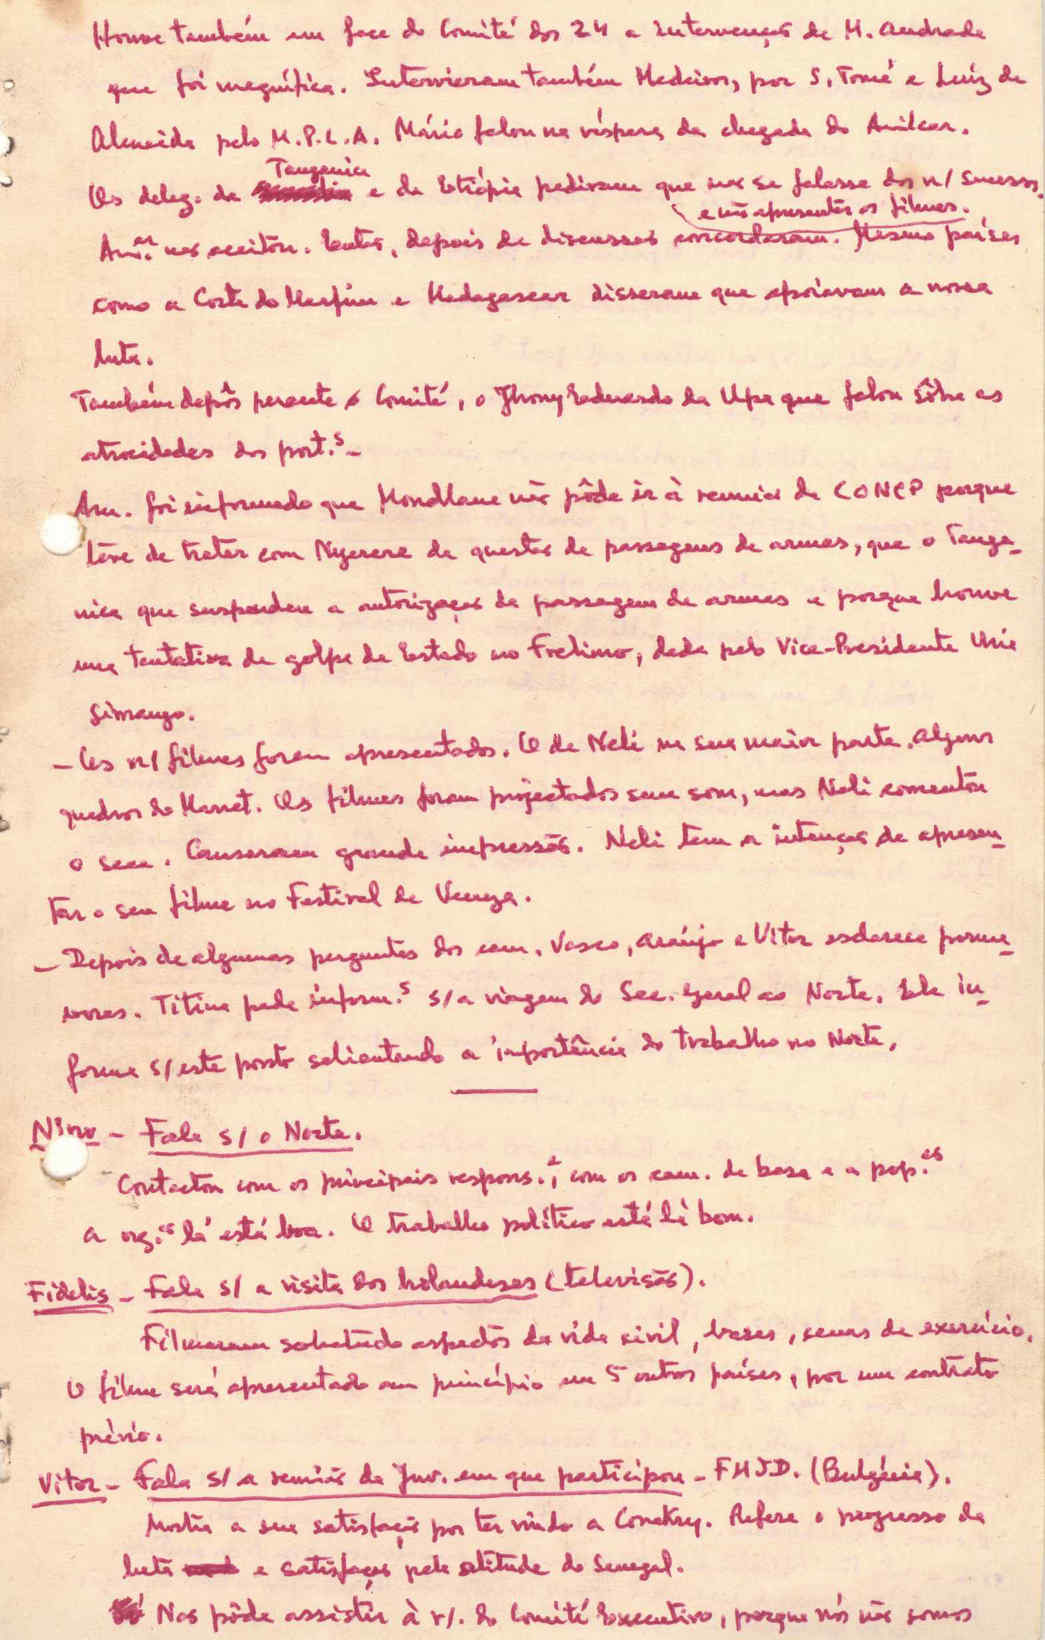 Houve também em face do Comité dos 24 a intervenção de M. Andrade
que foi magnífica. Intervieram também Medeiros, por S. Tomé e Luíz de
Almeida pelo M.P.L.A. Mário falou na véspera da chegada do Amilcar.
Os deleg. da Tanganica e da Etiópia pediram que não se falasse dos n/ sucessos
e não apresentar os filmes.
Am.ar não aceitou. Então, depois de discussões concordaram. Mesmo países
como a Costa do Marfim e Madagascar disseram que apoiavam a nossa
luta.
Também depôs perante o Comité, o Jhony Eduardo da Upa que falou sôbre as
atrocidades dos port.s -
Am. foi informado que Mondlane não pôde ir à reunião da CONCP porque
teve de tratar com Nyerere da questão de passagens de armas, que o Tanga-
nica que suspendeu a autorização da passagem de armas e porque houve
uma tentativa de golpe de Estado no Frelimo, dada pelo Vice-Presidente Uria
Simango.
- Os n/ filmes foram apresentados. O de Neli na sua maior parte. Alguns
quadros do Marret. Os filmes foram projectados sem som, mas Neli comentou
o seu. Causaram grande impressão. Neli tem a intenção de apresen-
tar o seu filme no Festival de Veneza.
- Depois de algumas perguntas dos cam. Vasco, Araújo e Vitor esclarece porme-
nores. Titina pede inform.s s/ a viagem do Sec. Geral ao Norte. Ele in-
forma s/ este ponto salientando a importância do trabalho no Norte.
Nino - Fala s/ o Norte.
Contactou com os principais respons., com os cam. de base e a pop.ão
A org.ão lá está boa. O trabalho político está lá bom.
Fidelis - Fala s/ a visita dos holandeses (televisão).
Filmaram sobretudo aspectos da vida civil, bases, cenas de exercício.
O filme será apresentado em princípio em 5 outros países, por um contrato
prévio.
Vitor - Fala s/ a reunião da Juv. em que participou - FMJD. (Bulgária).
Mostra a sua satisfação por ter vindo a Conakry. Refere o progresso da
luta e satisfação pela atitude do Senegal.
Não pôde assistir à r/. do Comité Executivo, porque nós não somos